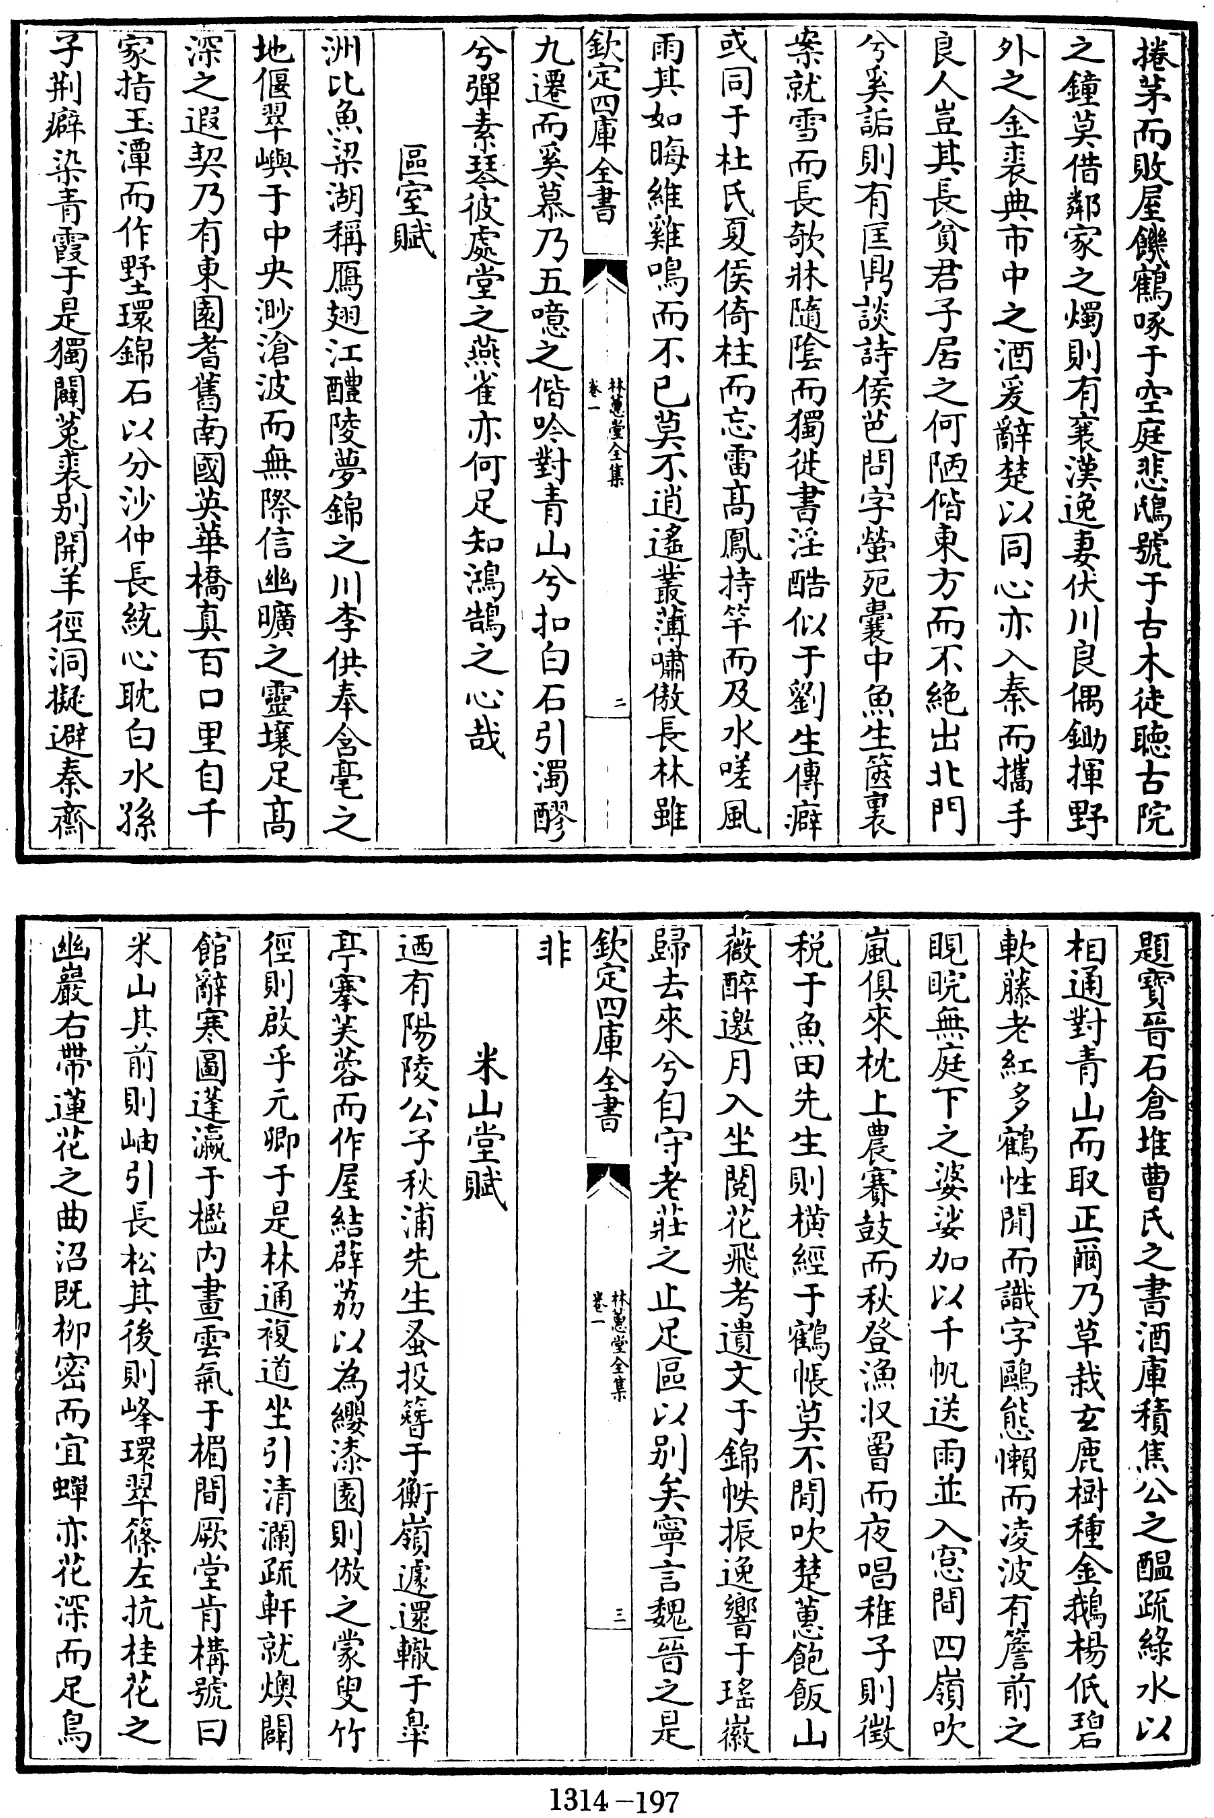 捲茅而敗屋饑鶴啄于空庭悲鴟號于古木徒聽古院
之鐘莫借鄰家之燭則有襄漢逸妻伏川良偶鋤揮野
外之金裘典市中之酒爰辭楚以同心亦入秦而攜手
良人豈其長貧君子居之何陋偕東方而不絶出北門
兮奚詬則有匡鼎談詩侯芭問字螢死囊中魚生篋裏
案就雪而長欹牀隨陰而獨徙書淫酷似于劉生傳癖
或同于杜氏夏侯倚柱而忘雷髙鳳持竿而及水嗟風
雨其如晦維雞鳴而不已莫不逍遙叢薄嘯傲長林雖
欽定四庫全書
林蕙堂全集
卷一
二
九遷而奚慕乃五噫之偕吟對青山兮扣白石引濁醪
兮彈素琴彼處堂之燕雀亦何足知鴻鵠之心哉
區室賦
洲比魚梁湖稱鴈翅江醴陵夢錦之川李供奉含毫之
地偃翠嶼于中央渺滄波而無際信幽曠之靈壤足髙
深之遐契乃有東園耆舊南國英華橋真百口里自千
家指玉潭而作墅環錦石以分沙仲長統心耽白水孫
子荆癖染青霞于是獨闢菟裘别開羊徑洞擬避秦齋
題寶晉石倉堆曹氏之書酒庫積焦公之醖疏綠水以
相通對青山而取正爾乃草栽玄鹿樹種金鵝楊低碧
軟藤老紅多鶴性閒而識字鷗態懶而凌波有簷前之
睍睆無庭下之婆娑加以千帆送雨並入窓間四嶺吹
嵐俱來枕上農賽鼓而秋登漁収罾而夜唱稚子則徵
税于魚田先生則横經于鶴帳莫不閒吹楚蕙飽飯山
薇醉邀月入坐閱花飛考遺文于錦帙振逸響于瑤徽
歸去來兮白守老莊之止足區以别矣寧言魏晉之是
欽定四庫全書
林蕙堂全集
卷一
三
非
米山堂賦
迺有陽陵公子秋浦先生蚤投簪于衡嶺遽還轍于臯
亭搴芙蓉而作屋結薜荔以為纓漆園則倣之蒙叟竹
徑則啟乎元卿于是林通複道坐引清瀾疏軒就燠闢
館辭寒圖蓬瀛于檻内畫雲氣于楣間厥堂肯構號曰
米山其前則岫引長松其後則峰環翠篠左抗桂花之
幽巖右帶蓮花之曲沼既柳密而宜蟬亦花深而足鳥
1314-197